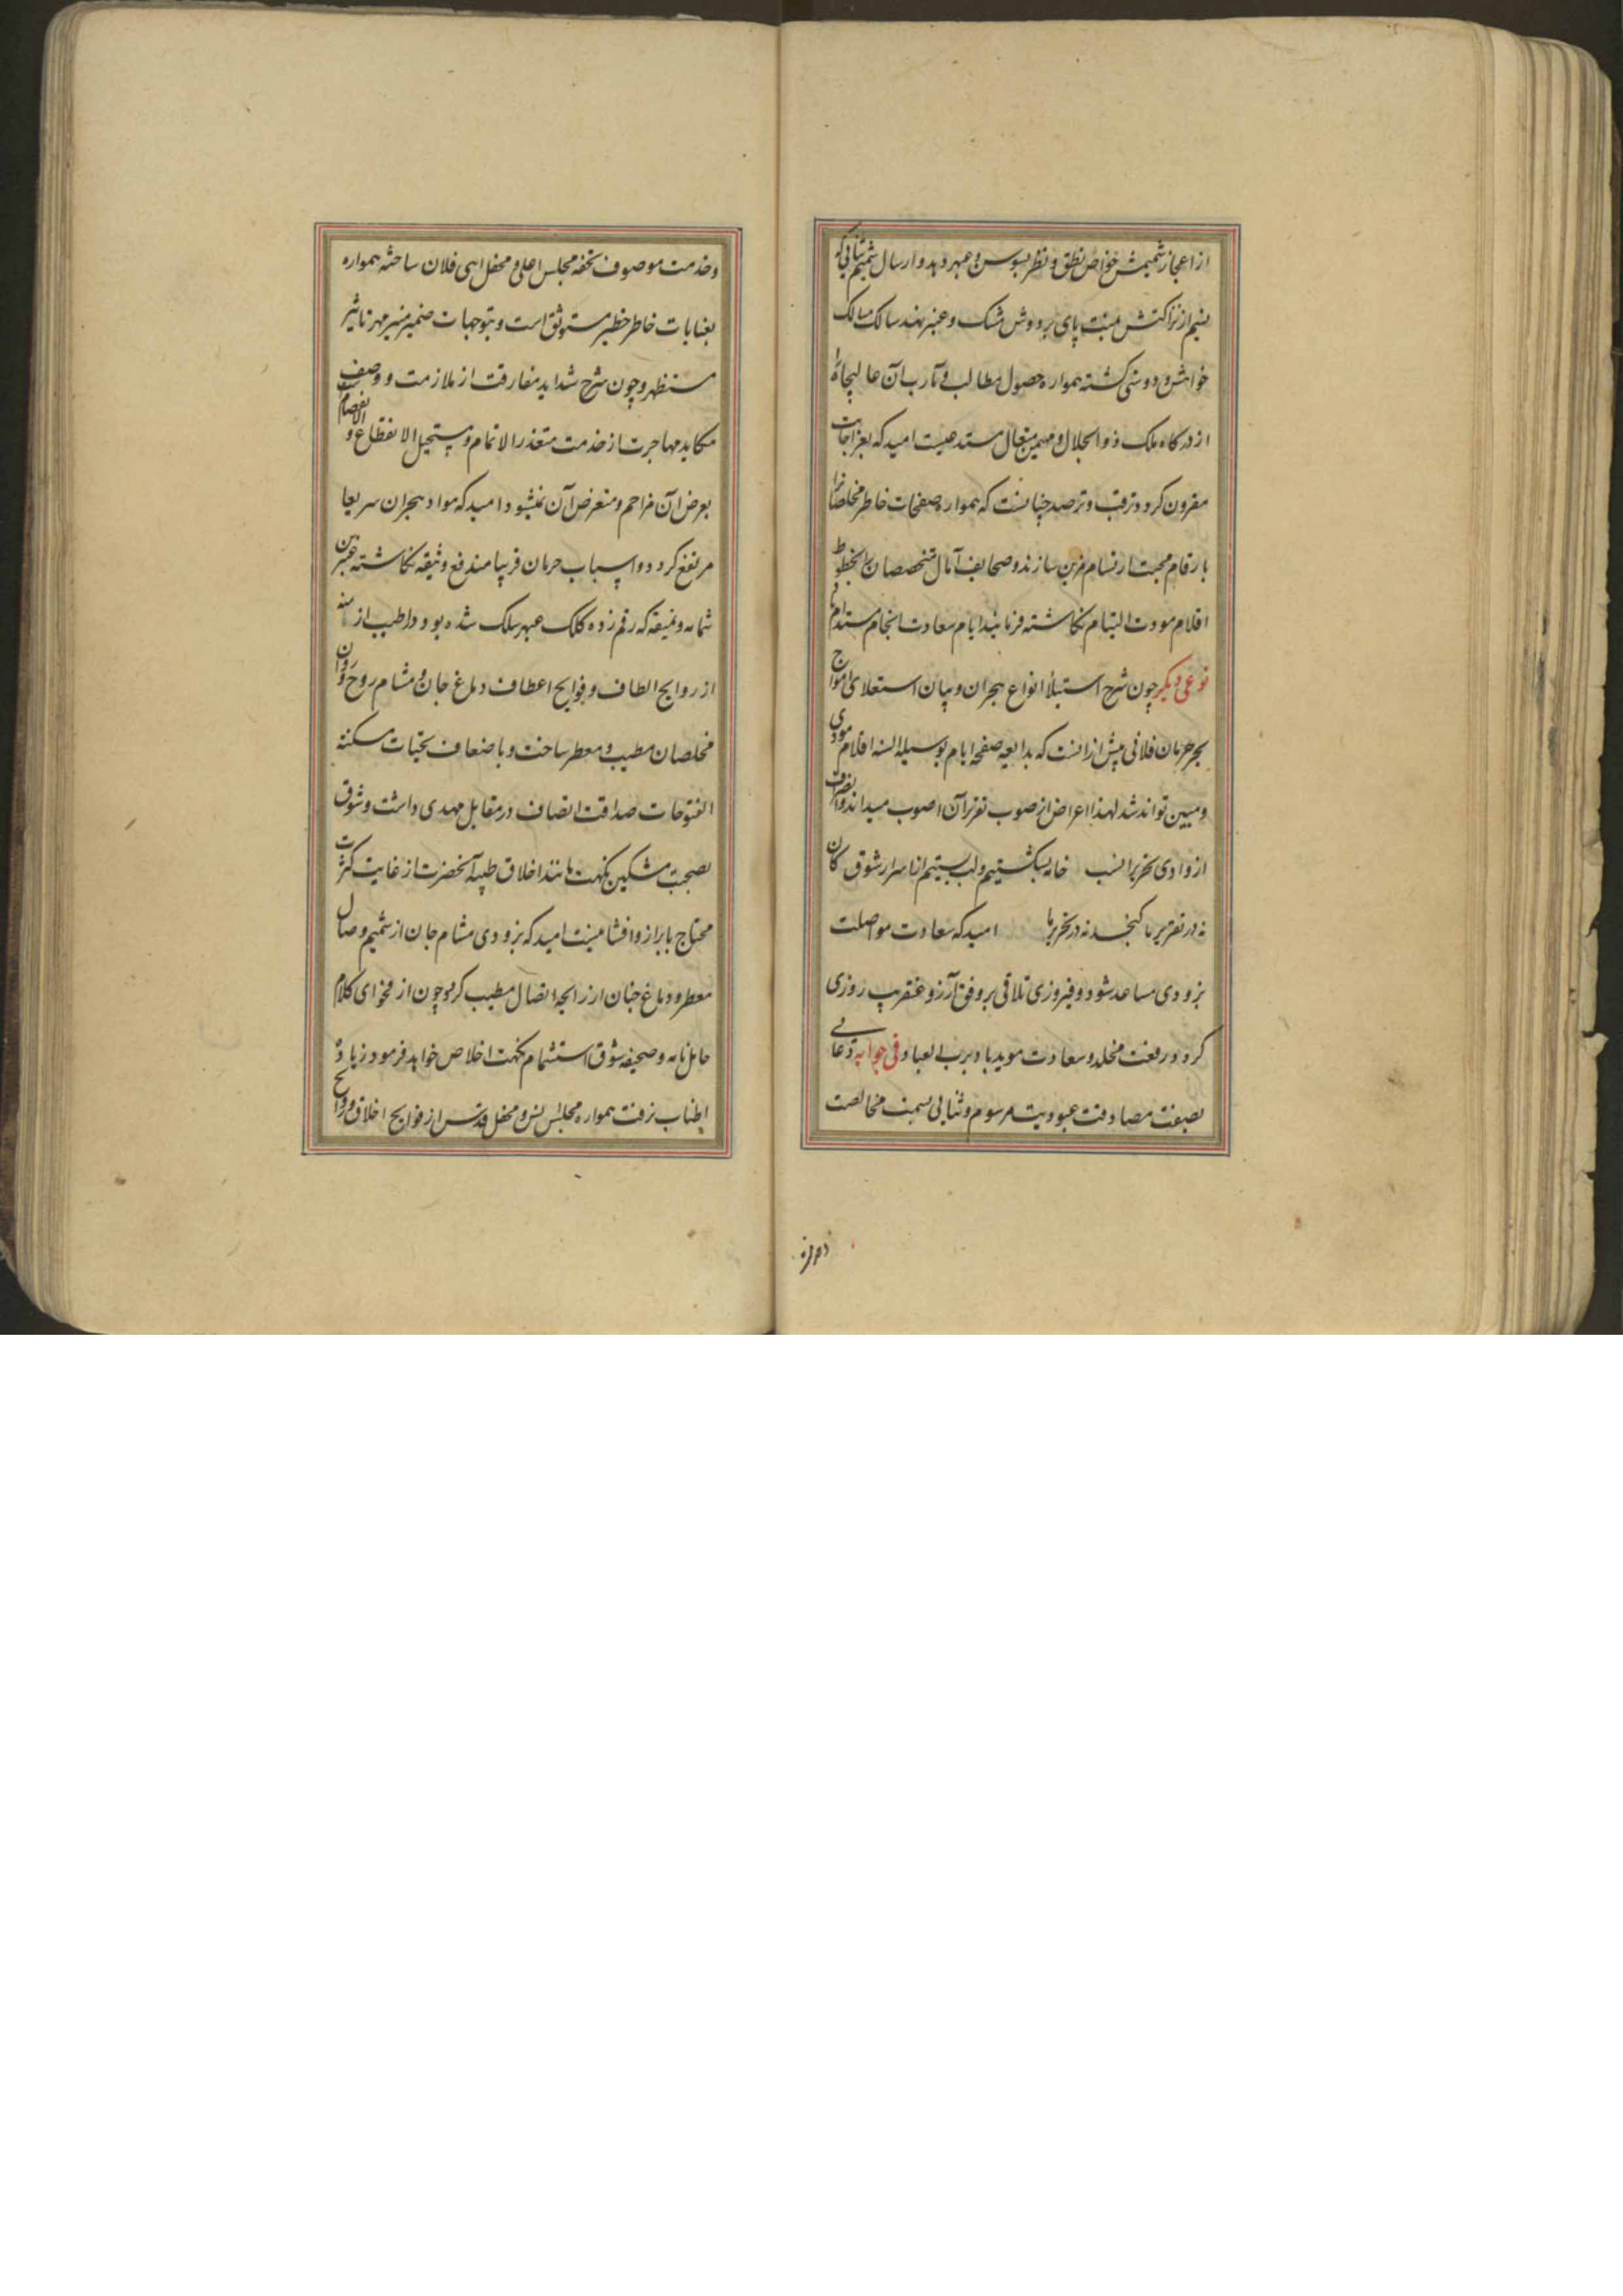 از اعجاز شمیمش خواص نطق و نظر بسوسن و عبهر دهد و ارسال شمیم ثنایی که
نسیم از نزاکتش منت پای بر دوش مشک و عنبر نهد سالک مسالک
خواهش و دوستی کشته همواره حصول مطالب و مآرب آن عالیجاه را
از درگاه ملک ذو الجلال و مهیمن متعال مستدعیست امید که بعز اجابت
مقرون کردد ترقب و ترصد چنانست که همواره صفحات خاطر مخلصانرا
بارقام محبت ارتسام مزین سازند و صحایف آمال متخصصان را بخطوط
اقلام مودت التیام نکاشته فرمایند ایام سعادت انجام مستدام باد
نوعی دیکر چون شرح استیلأ انواع هجران و بیان استعلای امواج
بحر حرمان فلانی بیش از انست که بدایعه صفحه ایام بوسیله السنه اقلام مودی
و مبین تواند شد لهذا اعراض از صوب تقریر آن اصوب میداند و انصراف
از وادی تحریر انسب خامه بشکستیم و لب بستیم از اسرار شوق کان
نه در تقریر ما کنجد نه در تحریر ما امید که سعادت مواصلت
بزودی مساعد شود و فیروزی تلاقی بر وفق آرزو عنقریب روزی
کردد رفعت مخلد و سعادت موید باد برب العباد فی جوابه دعائی
بصفت مصادقت عبودیت مرسوم و ثنایی بسمت مخالصت
و خدمت
و خدمت موصوف تحفه مجلس اعلی و محفل ابهی فلان ساخته همواره
بعنایات خاطر خطیر مستوثق است و بتوجهات ضمیر منیر مهر تاثیر
مستظهر و چون شرح شداید مفارقت از ملازمت و وصف
مکاید مهاجرت از خدمت متعذر الاتمام و مستحیل الانقطاع و الانفصام است
بعرض آن مزاحم و متعرض آن نمیشود امید که مواد هجران سریعا
مرتفع کردد و اسباب حرمان قریبا مندفع وثیقه نکاشته عنبرین
شمامه و نمیقه که رقم زده کلک عبهر سلک شده بود و اطیب از
از روایح الطاف و فوایح اعطاف دماغ جان و مشام روح و روان
مخلصان مطیب و معطر ساخت و باضعاف تحیات مسکنة
الفتوحات صداقت اتصاف در مقابل مهدی داشت و شوق
بصحبت مشکین نکهت مانند اخلاق طیبه آنحضرت از غایت کثرت
محتاج بابراز و افشا نیست امید که بزودی مشام جان از شمیم وصال
معطر و دماغ جنان از رایحه اتصال مطیب کردد چون از فحوای کلام
حامل نامه و صحیفه شوق استشمام نکهت اخلاص خواهد فرمود زیاده
اطناب نرفت همواره مجلس انس و محفل قدس از فوایح اخلاق و روایح